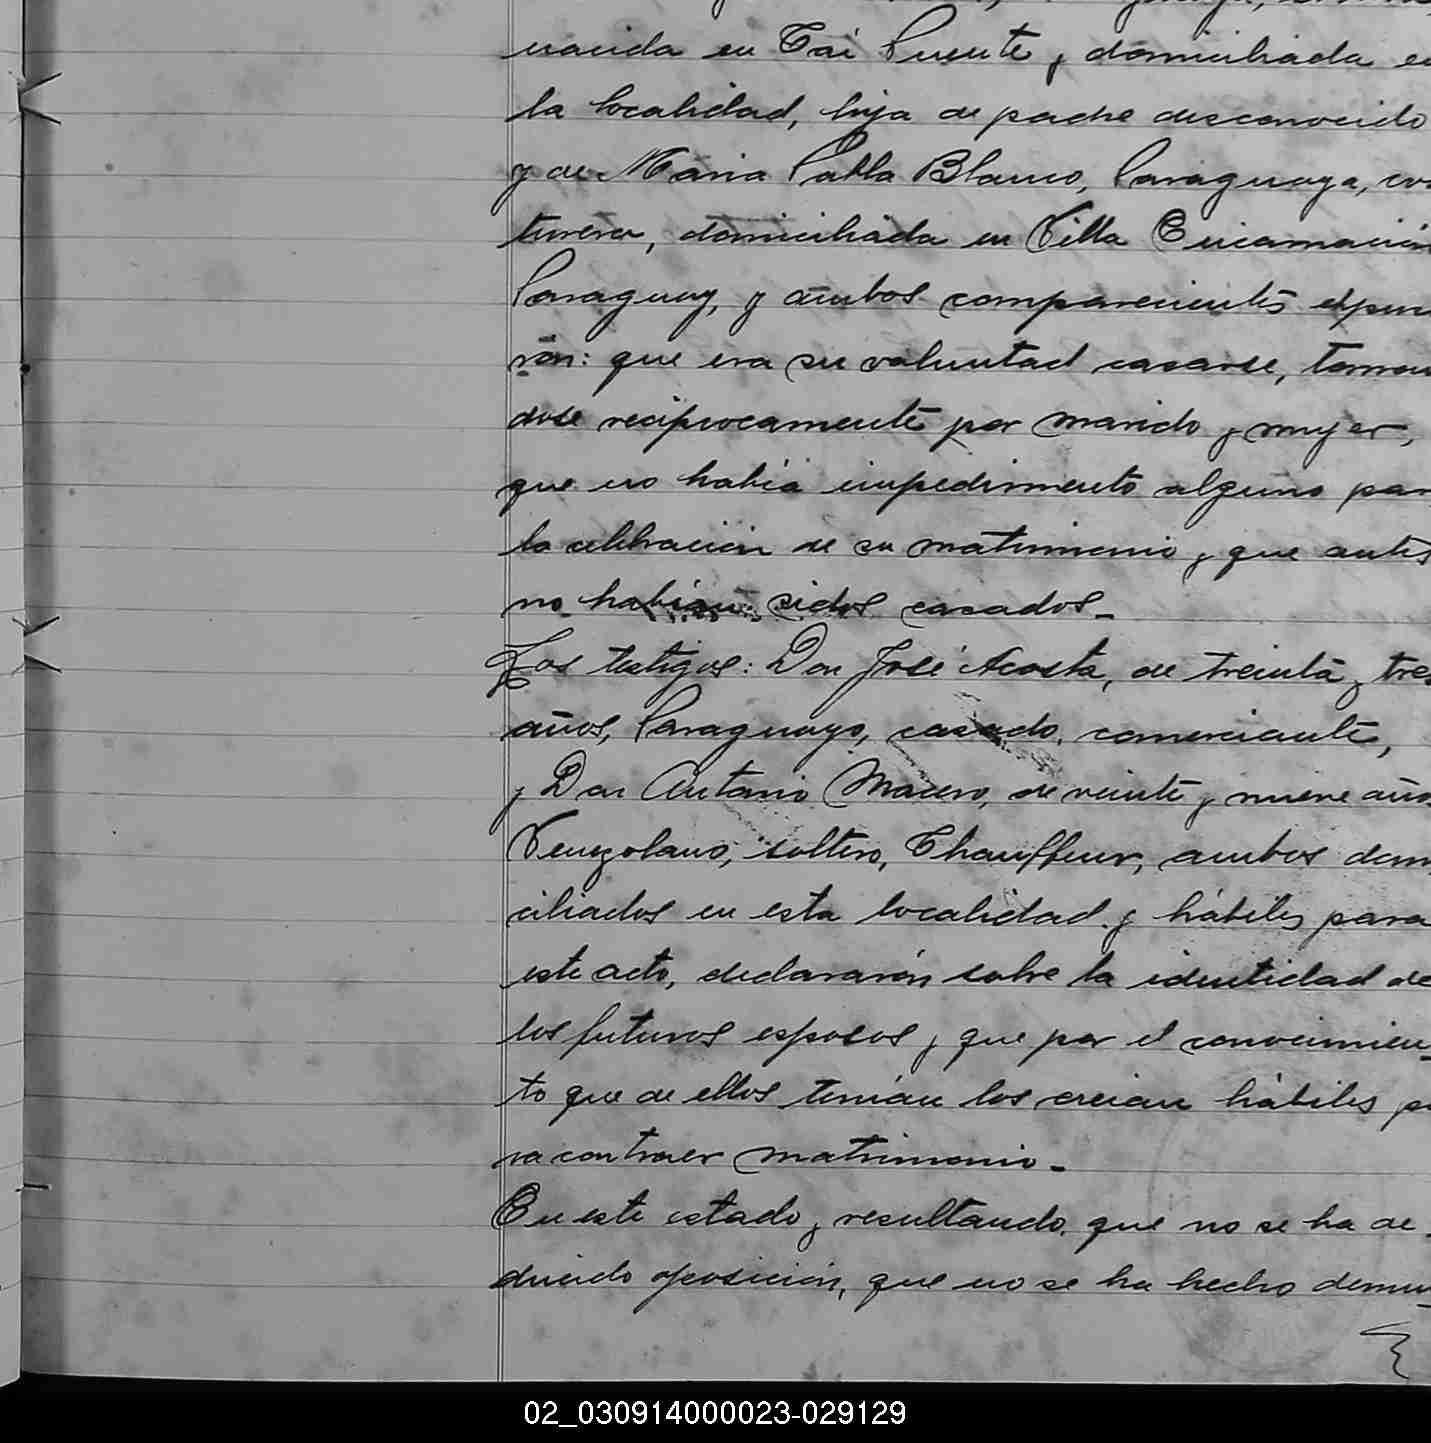 nacida en Tai Puente y domiciliada en
la localidad, hija de padre desconocido
y de Maria Pabla Blanco, Paraguaya, cos
turera, domiciliada en Villa Encarnación
Paraguay, y ambos comparecientes expusie
rón: que era su voluntad casarse, toman
dose reciprocamente por marido y mujer,
que no había impedimento alguno para
la celebración de su matrimonio y que antes
no habian sidos casados_
Los testigos: Don José Acosta, de treinta y tres
años, Paraguayo, casado, comerciante,
y Don Antonio Macero, de veinte y nueve años
Venezolano, soltero, Chauffeur, ambos domi
ciliados en esta localidad y hábiles para
este acto, declararón sobre la identidad de
los futuros esposos y que por el conocimien_
to que de ellos tenían los creian hábiles pa
ra contraer matrimonio_
En este estado y resultando que no se ha de_
ducido oposición, que no se ha hecho denun_
02_030914000023-029129